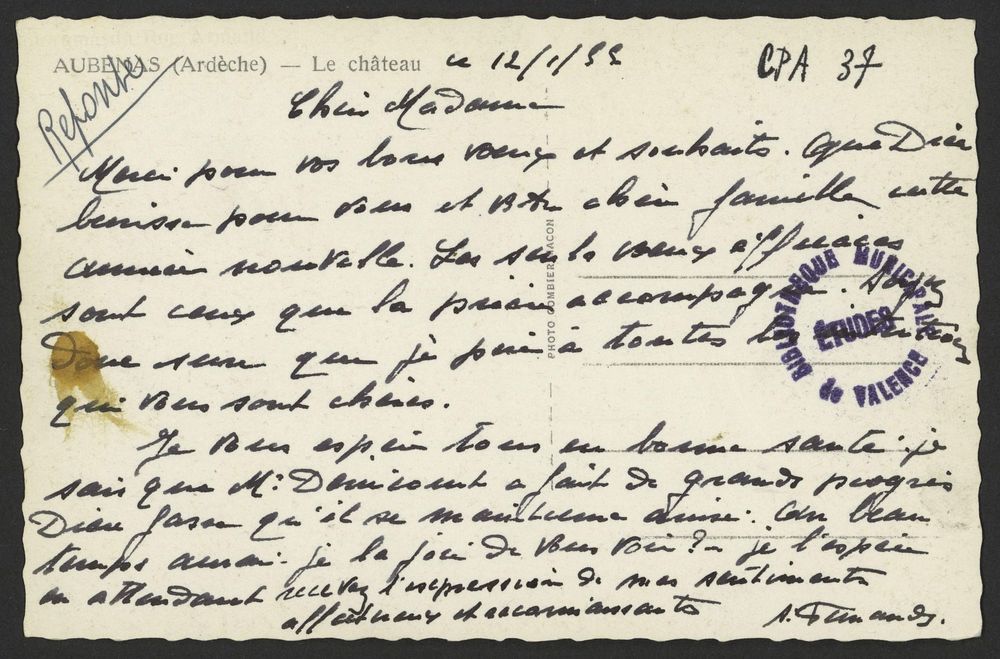 AUBENAS (Ardèche) — Le château le 12/1/55
CPA 37
Réponse
Chère Madame
Merci pour vos bons vœux et souhaits. Que Dieu
bénisse pour vous et votre chère famille cette
année nouvelle. Les seuls vœux efficaces
sont ceux que la prière accompagne. Soyez
Donc sure que je prie à toutes les intentions
qui vous sont chères.
Je vous espère tous en bonne santé. je
sais que Mr Denicourt a fait de grands progrès
Dieu fasse qu'il se maintienne ainsi. Au beau
temps aurai-je la joie de vous voir ? - je l'espère
en attendant recevez l'expression de mes sentiments
affectueux et reconnaissants
PHOTO COMBIER MACON
BIBLIOTHEQUE MUNICIPALE
ÉTUDES
de VALENCE